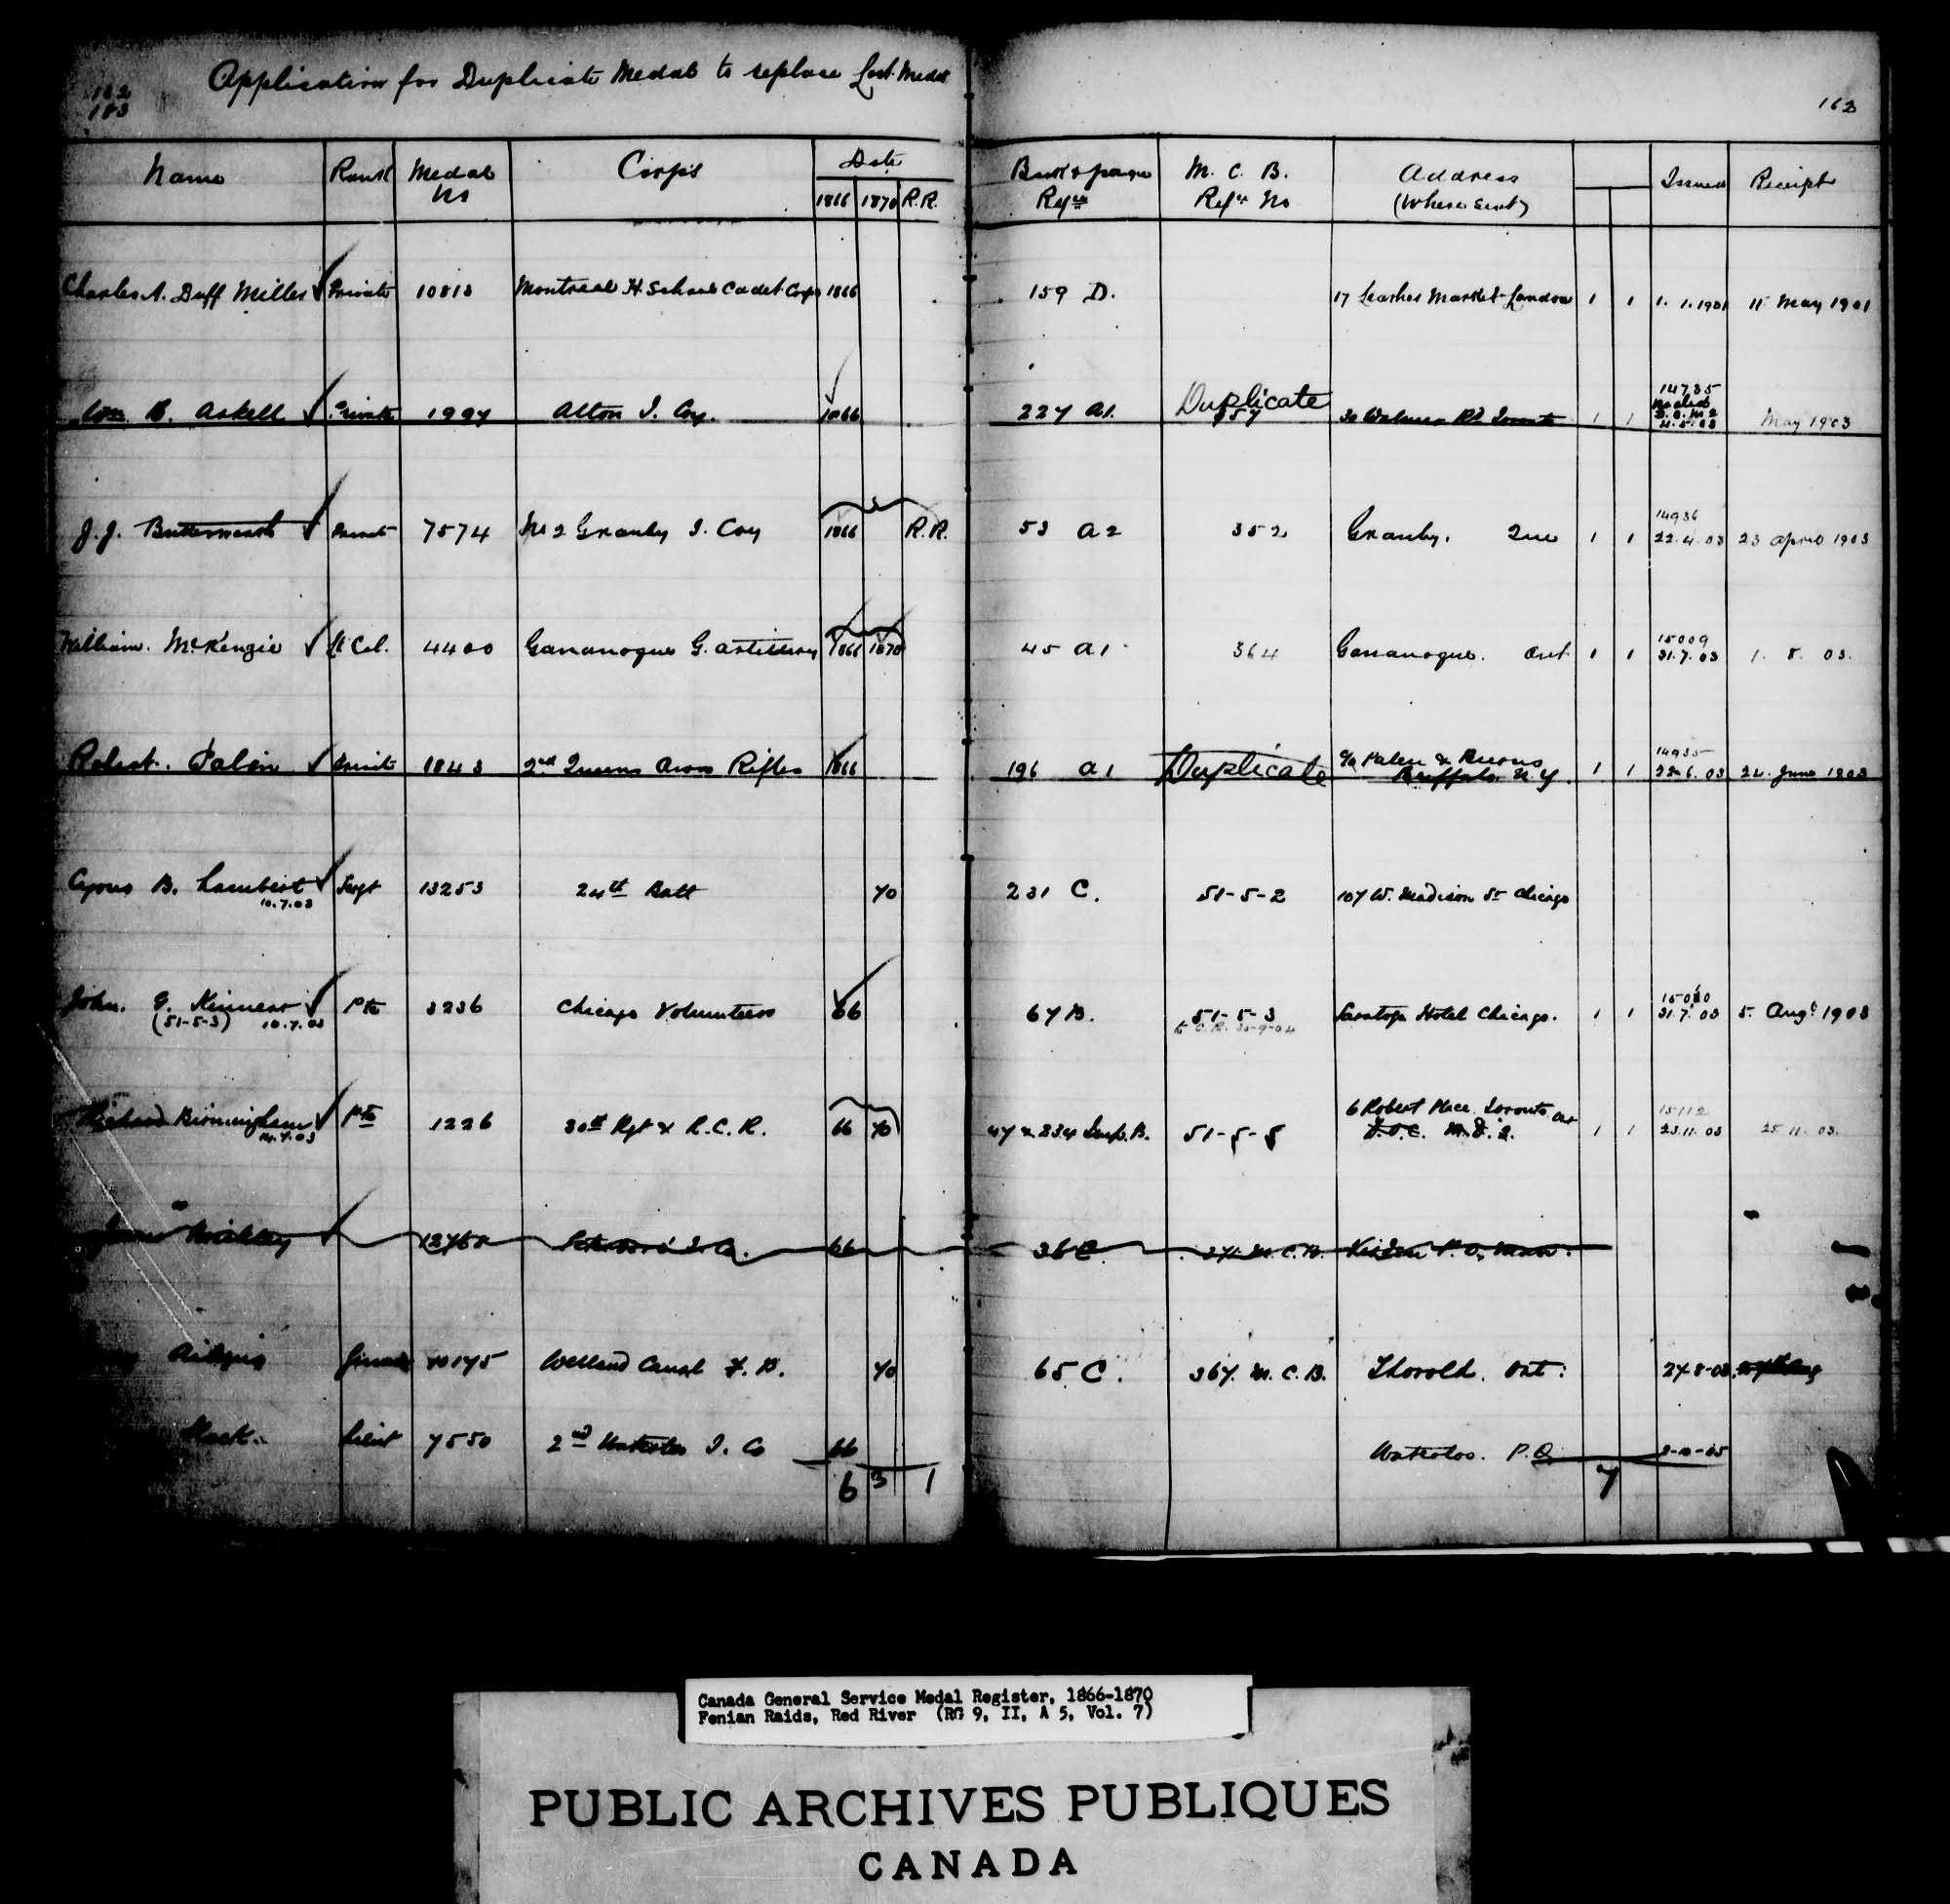 Application for Duplicate Medal to replace Lost Medal
183
163
Name Rank Medal No Corps Date 1866 1870 R.R. Book & page Refce M. C. B. Refce No Address (Where sent) Issued Receipt
Charles A. Duff Miller Private 10813 Montreal H. School Cadet Corps 1866 159 D. 17 Leather Market London 1 1 1. 1. 1901 11 May 1901
Wm B. Askell Private 1997 Alton I. Coy. 1866 227 A1. Duplicate 357 30 Walmer Rd Toronto 1 1 14785 4.5.03 May 1903
J. J. Butterworth Private 7574 No 2 Granby I. Coy 1866 R.R. 53 A2 352 Granby. Que 1 1 14936 22.4.03 23 April 1903
William. McKenzie Lt Col. 4400 Gananoque G. Artillery 1866 1870 45 A1 364 Gananoque. Ont 1 1 15009 31.7.03 1. 8. 03.
Robert. Palin Private 1843 2nd Queens Own Rifles 1866 196 A1 Duplicate Buffalo N.Y. 1 1 14935 22.6.03 24. June 1903
Cyrus B. Lambert 10.7.03 Sergt 13253 24th Batt 70 231 C. 51-5-2 107 W. Madison St Chicago
John. G. Kinnear (51-5-3) 10.7.03 Pte 3236 Chicago Volunteers 66 67 B. 51-5-3 Saratoga Hotel Chicago. 1 1 31.7.03 5. Augt 1903
Richard Birmingham 14.7.03 Pte 1226 30th Rgt & R.C.R. 66 70 47 & 234 Sup. B. 51-5-5 6 Robert Place Toronto Ont D.O.C. M.D. 2. 1 1 15112 23.11.03 25 11. 03.
66 36 C M.C.B. P.O.
10175 Welland Canal F. B. 70 65 C. 367. M.C.B. Thorold. Ont: 27-8-03
Lieut 7550 2nd Waterloo I. Co 66 Waterloo. P.Q.
6 3 1 7
Canada General Service Medal Register, 1866-1870
Fenian Raids, Red River (RG 9, II, A 5, Vol. 7)
PUBLIC ARCHIVES PUBLIQUES
CANADA